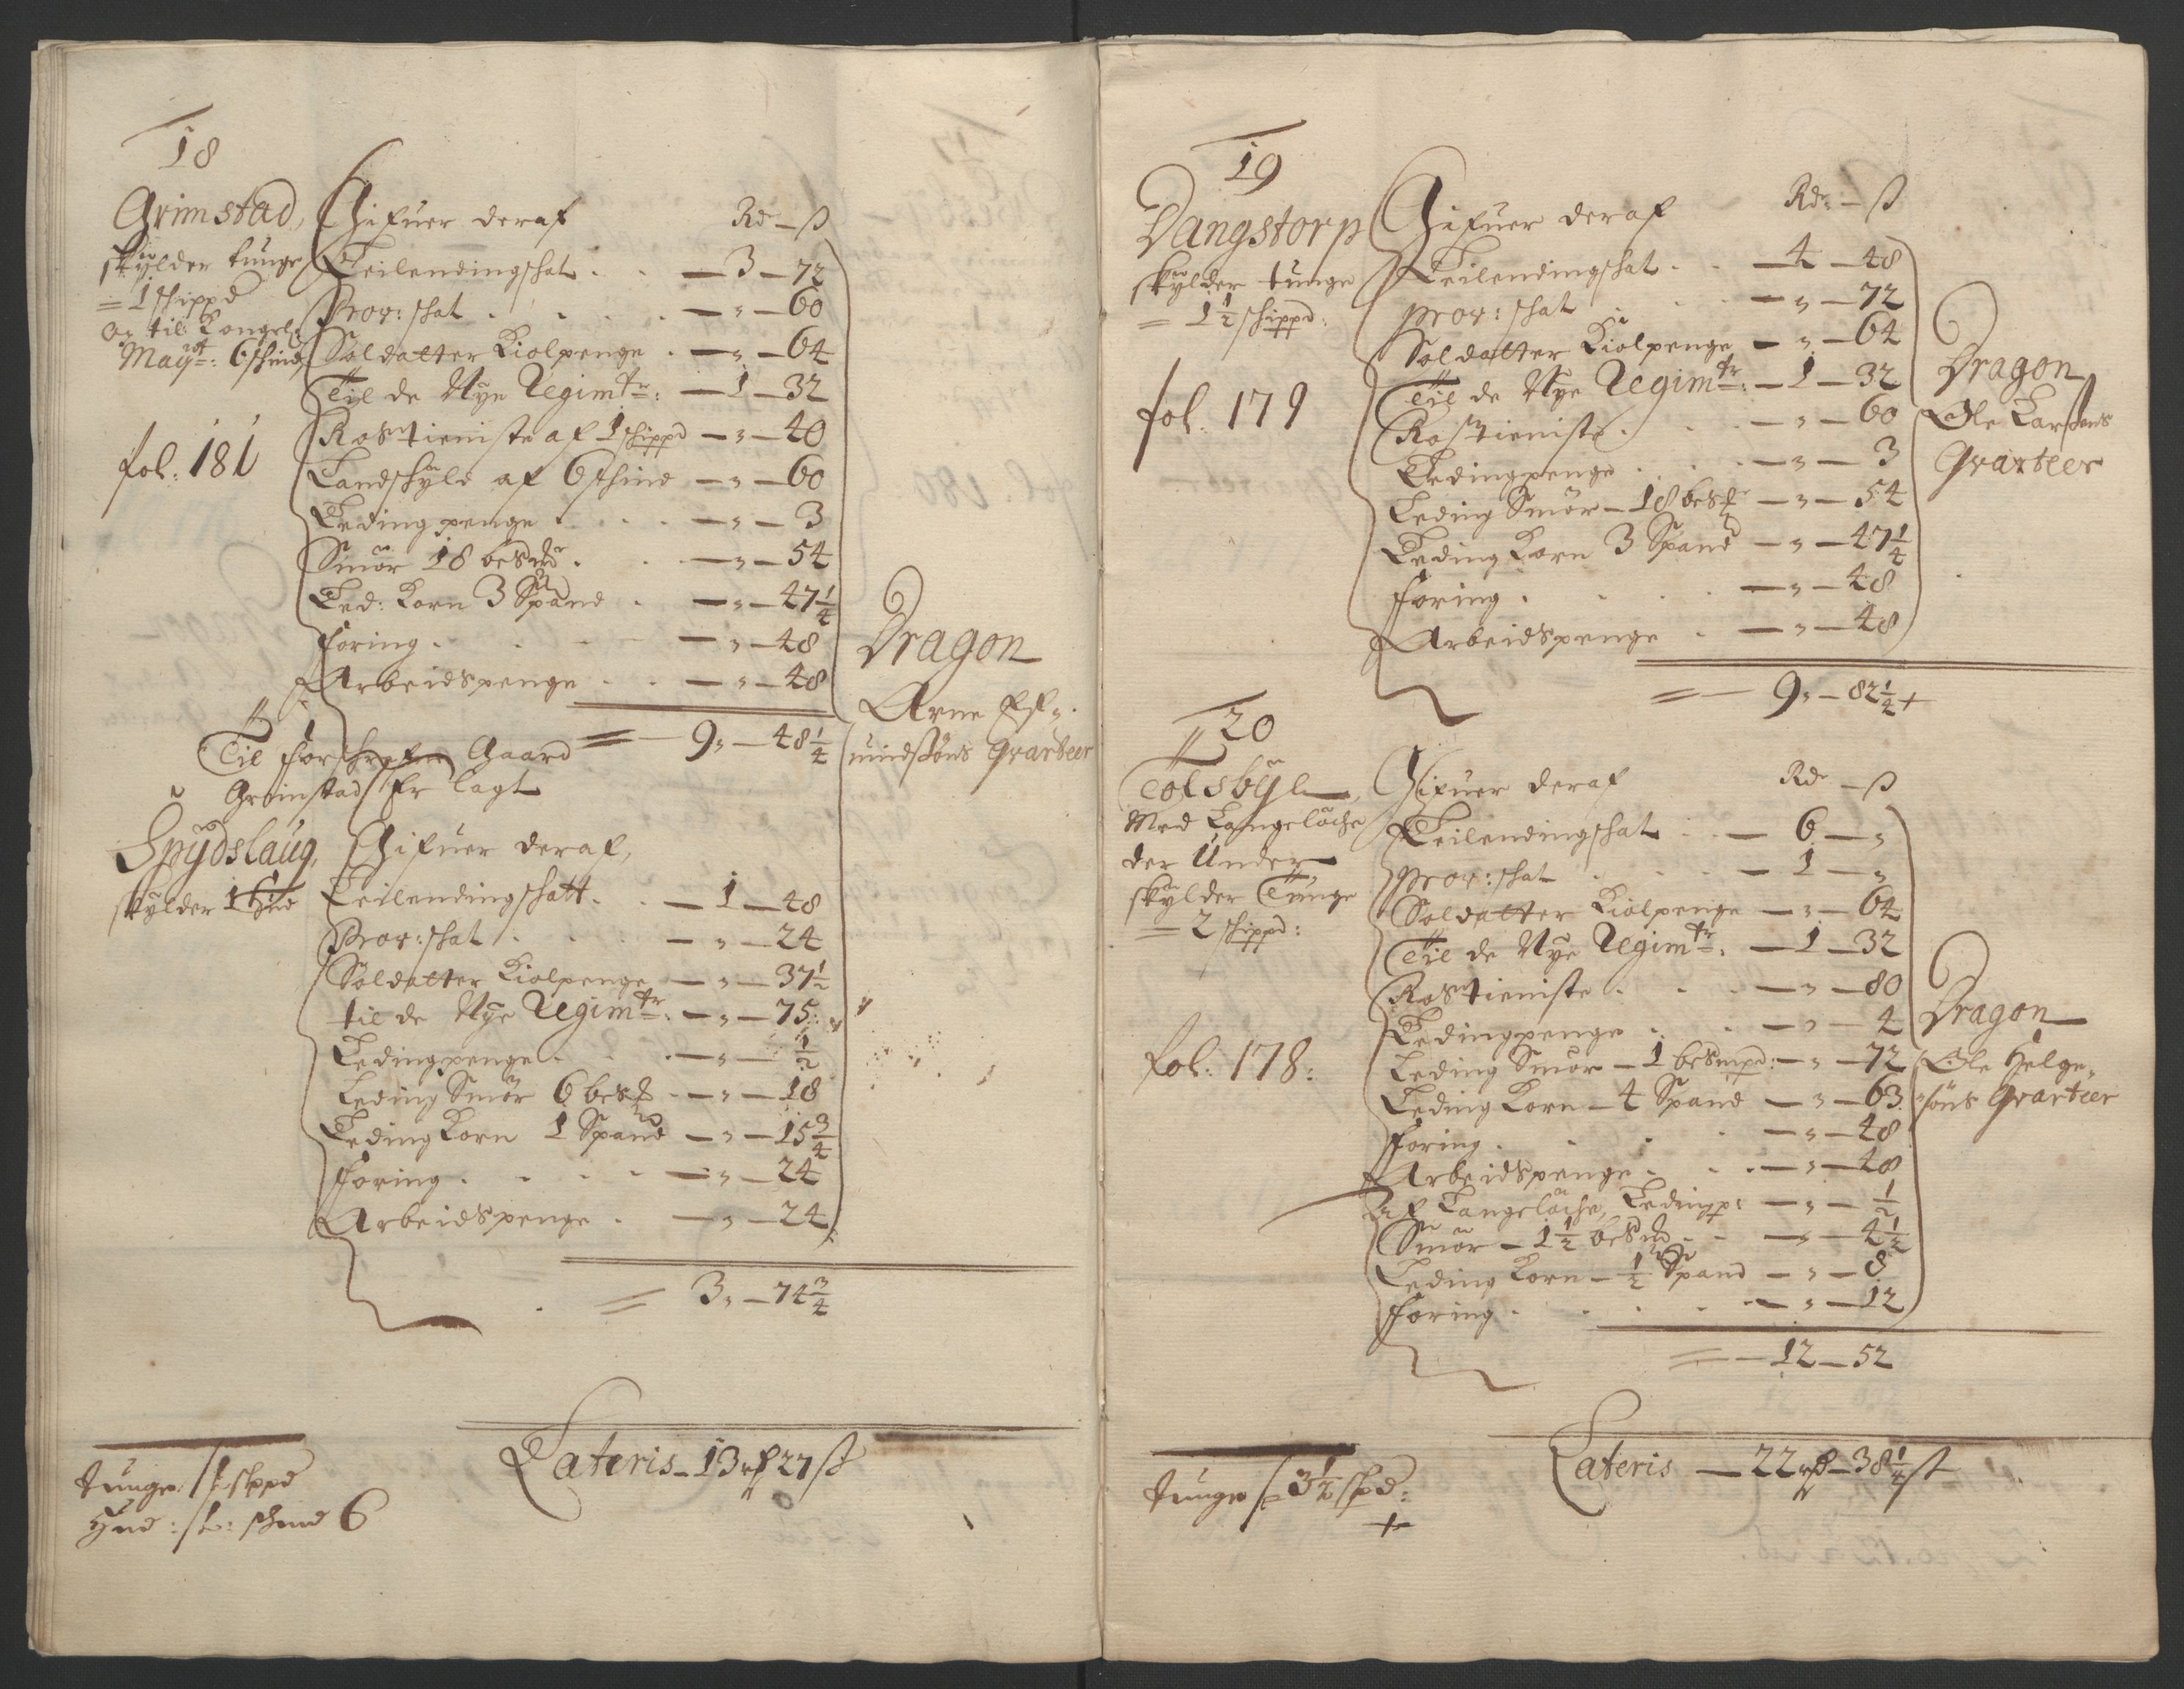 18
Grimstad,
skylder tunge
= 1 schippd
og til Kongel:
Mayt: 6 schind
fol: 181
Gifuer deraf Rdr – ß
Leilendingschat . . — 3 — 72
Prov: schat . . . . — " — 60
Soldatter Kiolpenge . — " — 64
Til de Nye Regimtr: — 1 — 32
Rostieniste af 1 schippd — " — 40
Landschyld af 6 schind — " — 60
Leding penge . . . . — " — 3
Smör 18 besmr . . — " — 54
Led: Korn 3 Spand . — " — 47¼
foring . . . — " — 48
Arbeidspenge . . — " — 48
= — 9 " — 48¼
Dragon
Arne
mindsöns Qvarteer
Til forschrefne Gaard
Grimstad Er lagt
Spydslaug,
skylder
Gifuer deraf,
Leilendingschatt . . — 1 — 48
Prov: schat . . . — " — 24
Soldatter Kiolpenge — " — 37½
til de Nye Regimtr: — " — 75
Ledingpenge . . . — " — ½
Leding Smör 6 besr . — " — 18
Leding Korn 1 Spand — " — 15¾
foring . . . . — " — 24
Arbeidspenge . — " — 24
= 3 " — 74¾
Lateris – 13 rd 27 ß
tunge 1 schppd
Hud: schind 6
19
Dangstorp
skylder tunge
= 1½ schippd:
fol: 179
Gifuer deraf Rdr: – ß
Leilendingschat . . — 4 — 48
prov: schat . . . — " — 72
Soldatter Kiolpenge — " — 64
Til de Nye Regimtr: — 1 — 32
Rostieniste . . . — " — 60
Ledingpenge . . . — " — 3
Leding Smör – 18 besr — " — 54
Leding Korn 3 Spand — " — 47¼
foring . . . . — " — 48
Arbeidspenge . — " — 48
= — 9 " — 82¼ +
Dragon
Ole Larsens
Qvarteer
20
Tolsbye,
Med Langelöche
der Under,
skylder Tunge
= 2 schippd:
fol: 178:
Gifuer deraf Rdr – ß
Leilendingschat . . — 6 — "
prov: schat . . . — 1 — "
Soldatter Kiolpenge — " — 64
Til de Nye Regimtr: — 1 — 32
Rostieniste . . . — " — 80
Ledingpenge . . — " — 4
Leding Smör – 1 besmpd: — " — 72
Leding Korn – 4 Spand — " — 63
foring . . . . — " — 48
Arbeidspenge . . . — " — 48
Af Langelöche, Ledingp: — " — ½
Smör – 1½ besmr . . — " — 4½
Leding Korn – ½ Spand — " — 8
foring . . . . — " — 12
= — 12 — 52
Dragon
Ole Helge-
söns Qvarteer
Lateris — 22 rd – 38¼ ß
tunge 3½ schpd:
+